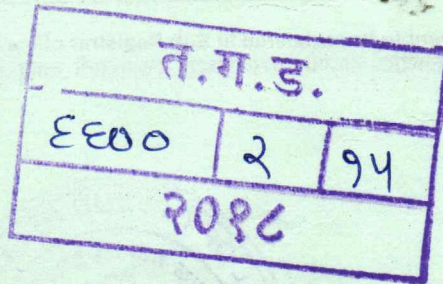 त.ग.ड.
६६०० २ १५
२०१८